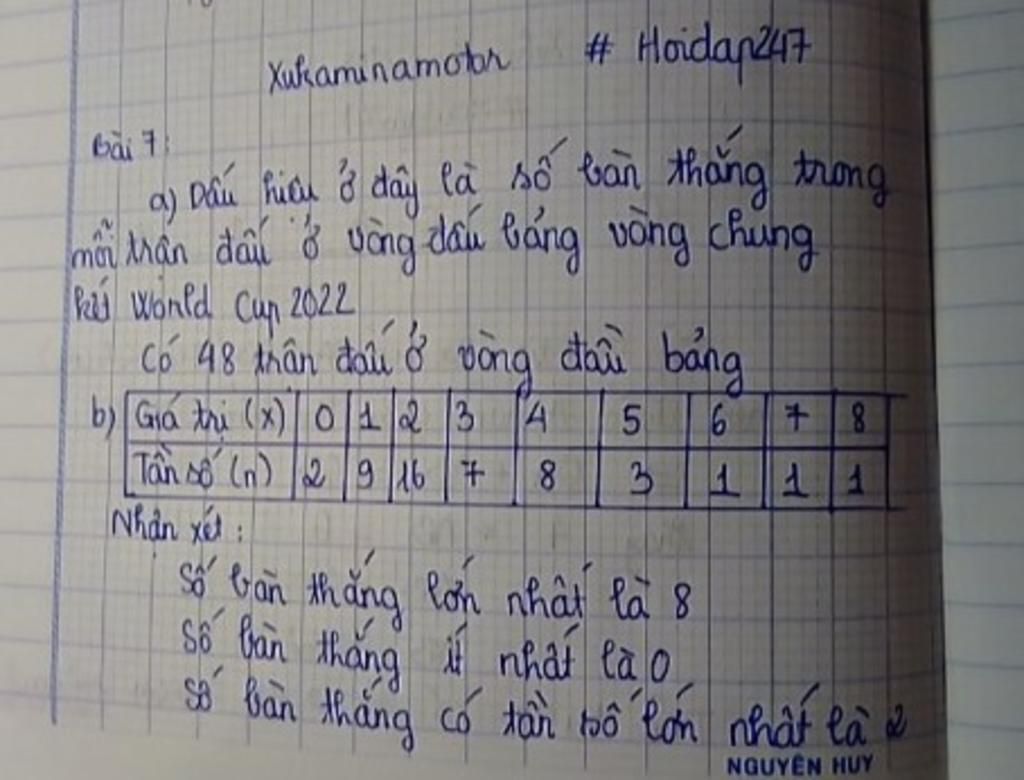 Xukaminamotor # Hoidap247
Bài 7:
a) Dấu hiệu ở đây là số bàn thắng trong
mỗi trận đấu ở vòng đấu bảng vòng chung
kết World Cup 2022
Có 48 trận đấu ở vòng đấu bảng
b) Giá trị (x) 0 1 2 3 4 5 6 7 8
Tần số (n) 2 9 16 7 8 3 1 1 1
Nhận xét:
Số bàn thắng lớn nhất là 8
Số bàn thắng ít nhất là 0
Số bàn thắng có tần số lớn nhất là 2
NGUYÊN HUY